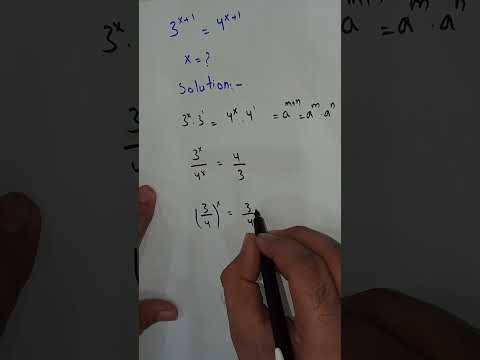 3^{x+1} = 4^{x+1}
x = ?
Solution:-
3^x · 3^1 = 4^x · 4^1 = a^{m+n} = a^m · a^n
3^x / 4^x = 4 / 3
(3/4)^x = 3/4